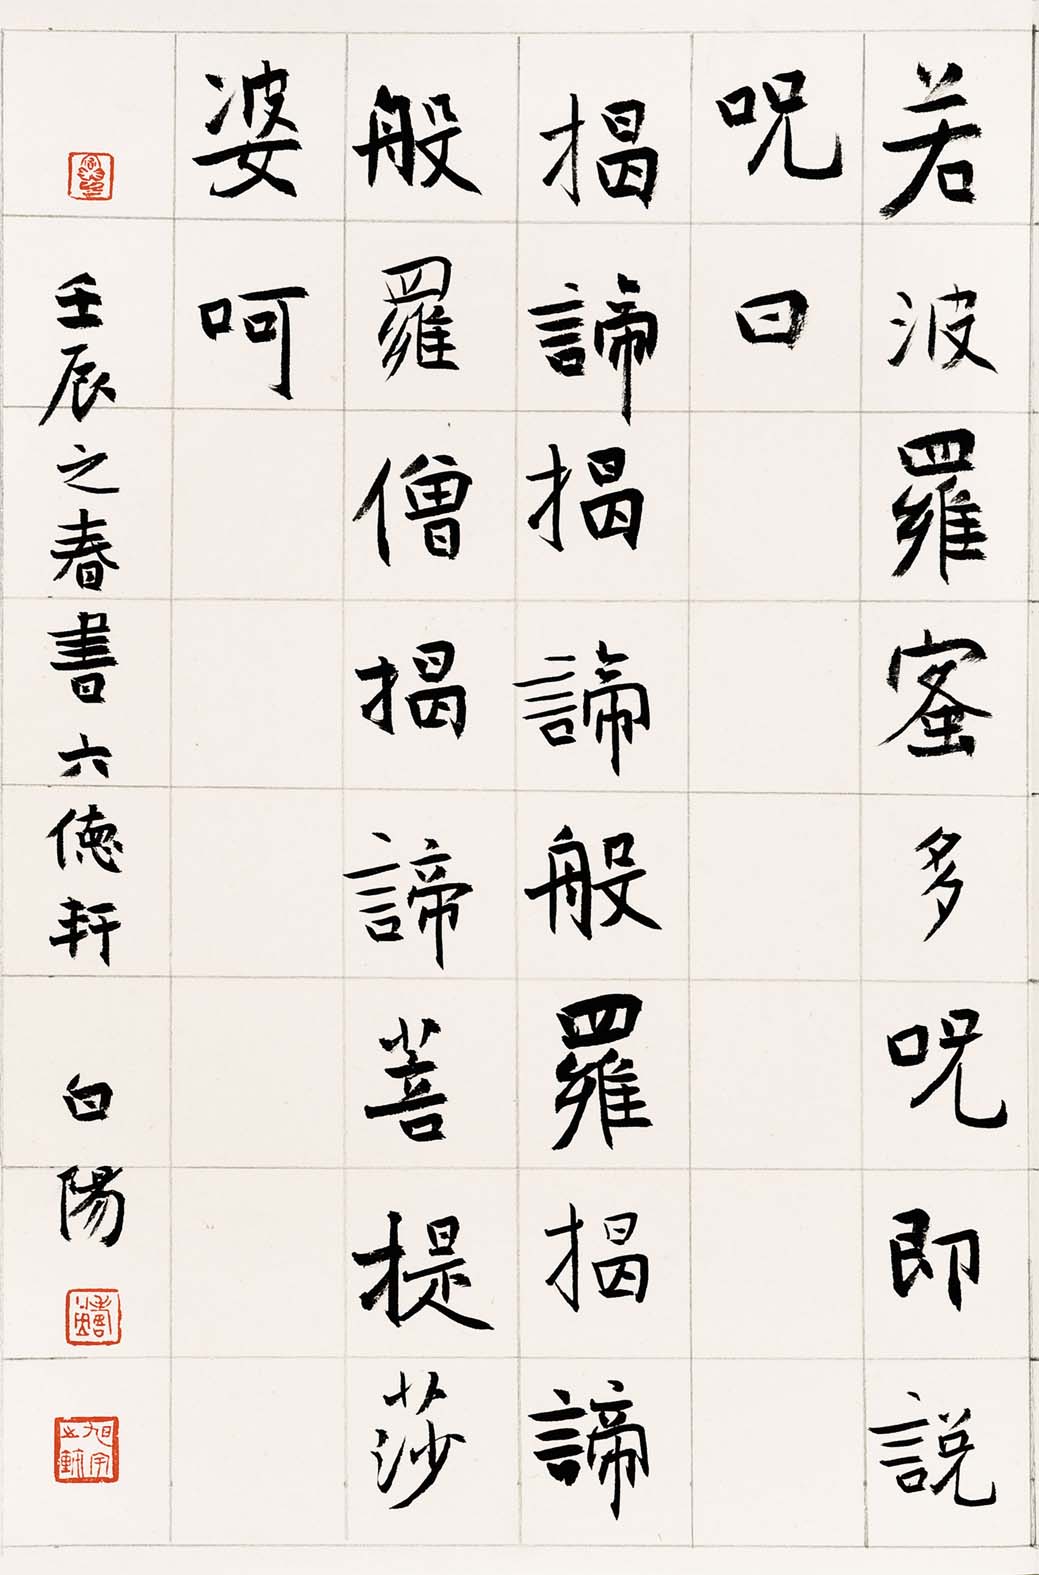 若波羅蜜多呪即說
呪曰
揭諦揭諦般羅揭諦
般羅僧揭諦菩提莎
婆呵
壬辰之春書六德軒 白陽